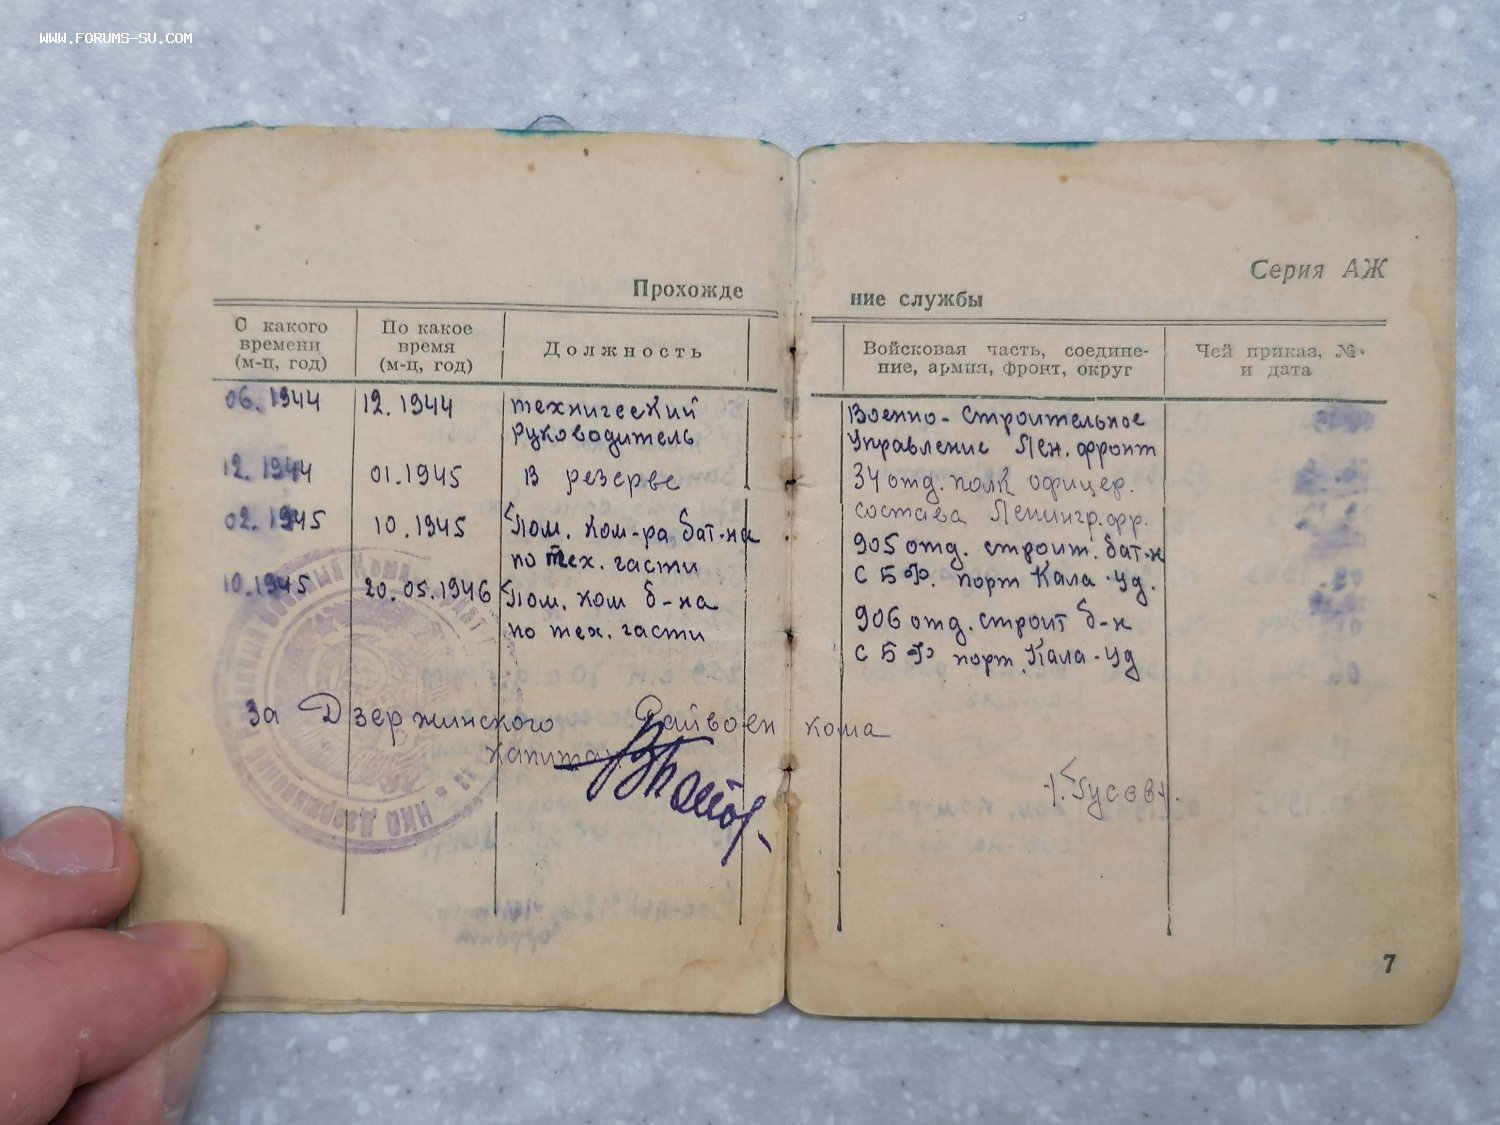 WWW.FORUMS-SU.COM
Серия АЖ
Прохожде
ние службы
С какого времени (м-ц, год)
По какое время (м-ц, год)
Должность
Войсковая часть, соедине-
ние, армия, фронт, округ
Чей приказ, №
и дата
06.1944 12.1944 технический Военно-Строительное
руководитель Управление Лен. фронт
12.1944 01.1945 В резерве 34 отд. полк офицер.
состава Ленингр. фр.
02.1945 10.1945 Пом. ком-ра бат-на 905 отд. строит. бат-н
по тех. части С Б Ф. порт Кала-Уд.
10.1945 20.05.1946 Пом. ком б-на 906 отд. строит б-н
по тех. части С Б Ф порт. Кала-Уд
За Дзержинского Райвоен кома
капитан
7